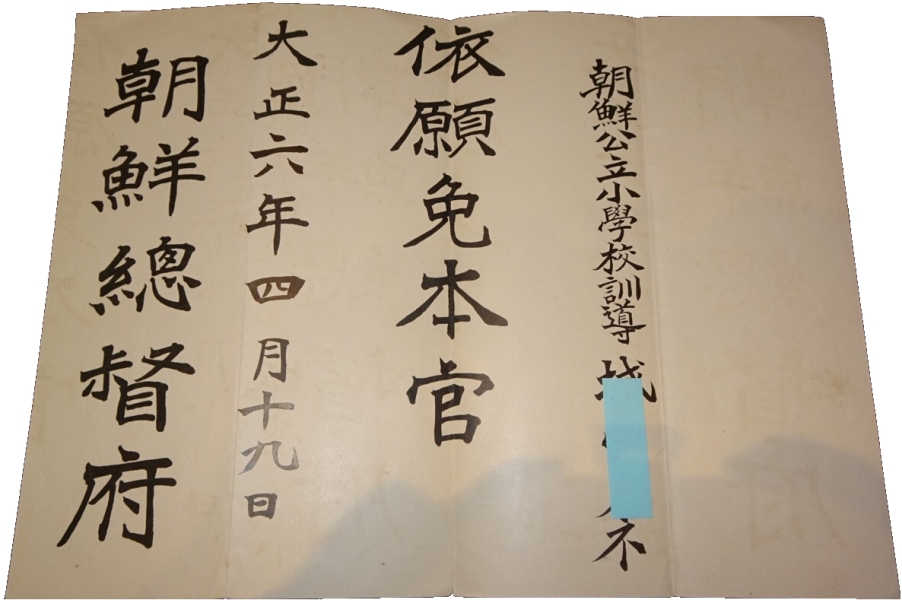 朝鮮公立小學校訓導
依願免本官
大正六年四月十九日
朝鮮總督府